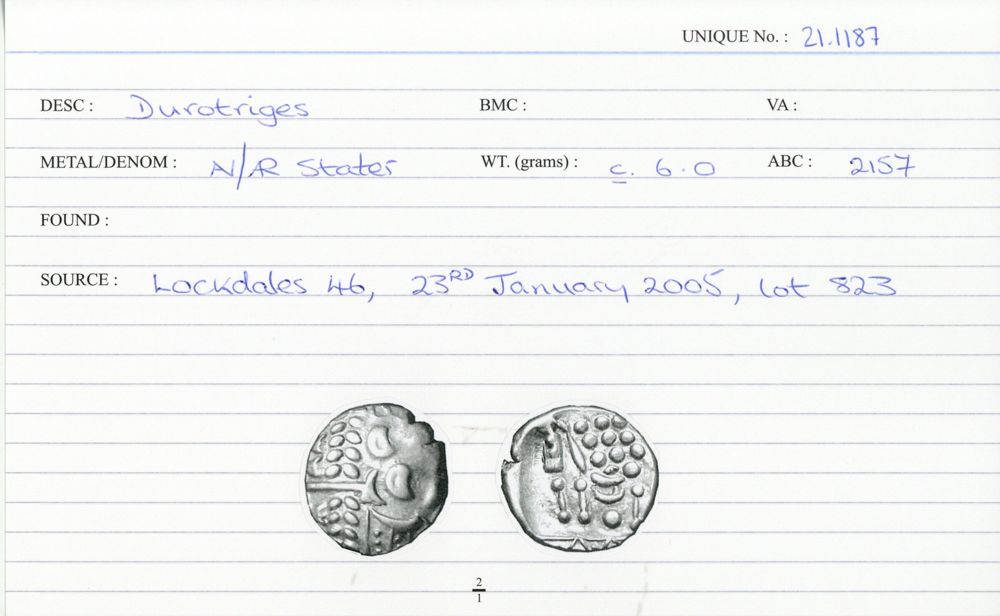 UNIQUE No. : 21.1187
DESC : Durotriges BMC : VA :
METAL/DENOM : N/AR Stater WT. (grams) : c. 6.0 ABC : 2157
FOUND :
SOURCE : Lockdales 46, 23RD January 2005, lot 823
2
1